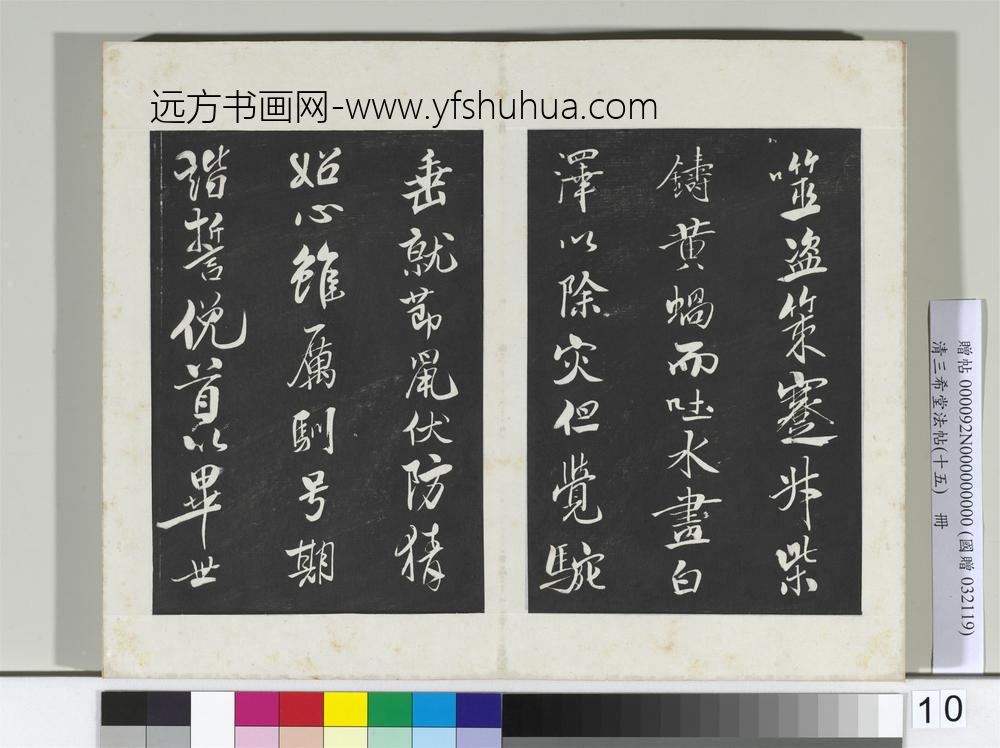 远方书画网-www.yfshuhua.com
噬盗策蹇升柴
鑄黃蝸而吐水畫白
澤以除灾但覺駝
垂就節鼠伏防猜
始心雖厲馴号期
諧誓俛首以畢世
贈帖 0000092N000000000 (國贈 032119)
清三希堂法帖(十五) 冊
10